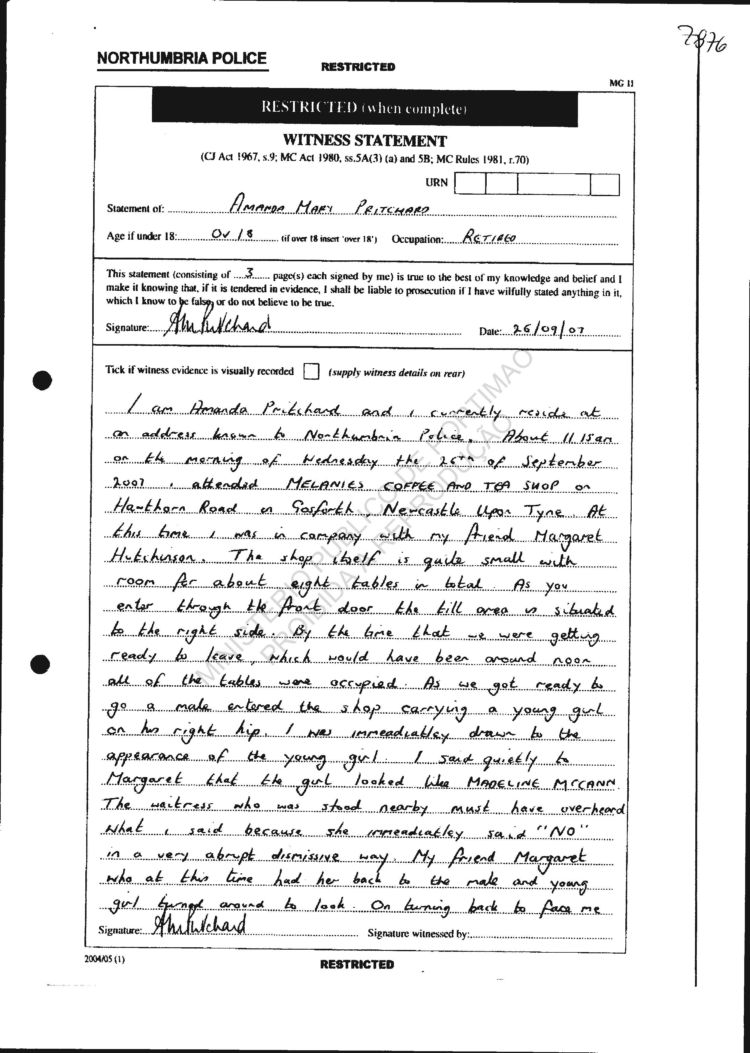 7876
NORTHUMBRIA POLICE
RESTRICTED
MG 11
RESTRICTED (when complete)
WITNESS STATEMENT
(CJ Act 1967, s.9; MC Act 1980, ss.5A(3) (a) and 5B; MC Rules 1981, r.70)
URN
Statement of: AMANDA MARY PRITCHARD
Age if under 18: OV 18 (if over 18 insert 'over 18') Occupation: RETIRED
This statement (consisting of 3 page(s) each signed by me) is true to the best of my knowledge and belief and I
make it knowing that, if it is tendered in evidence, I shall be liable to prosecution if I have wilfully stated anything in it,
which I know to be false, or do not believe to be true.
Signature: AM Pritchard Date: 26/09/07
Tick if witness evidence is visually recorded (supply witness details on rear)
I am Amanda Pritchard and I currently reside at
an address known to Northumbria Police. About 11.15am
on the morning of Wednesday the 26th of September
2007 I attended MELANIES COFFEE AND TEA SHOP on
Hawthorn Road in Gosforth, Newcastle Upon Tyne. At
this time I was in company with my friend Margaret
Hutchinson. The shop itself is quite small with
room for about eight tables in total. As you
enter through the front door the till area is situated
to the right side. By the time that we were getting
ready to leave, which would have been around noon
all of the tables were occupied. As we got ready to
go a male entered the shop carrying a young girl
on his right hip. I was immeadiatley drawn to the
appearance of the young girl. I said quietly to
Margaret that the girl looked like MADELINE MCCANN.
The waitress who was stood nearby must have overheard
what I said because she immeadiatley said "NO"
in a very abrupt dismissive way. My friend Margaret
who at this time had her back to the male and young
girl turned around to look. On turning back to face me
Signature: AM Pritchard Signature witnessed by:
2004/05 (1)
RESTRICTED
MINISTÉRIO PUBLICO DE PORTIMAO
PROIBIDA A REPRODUÇÃO